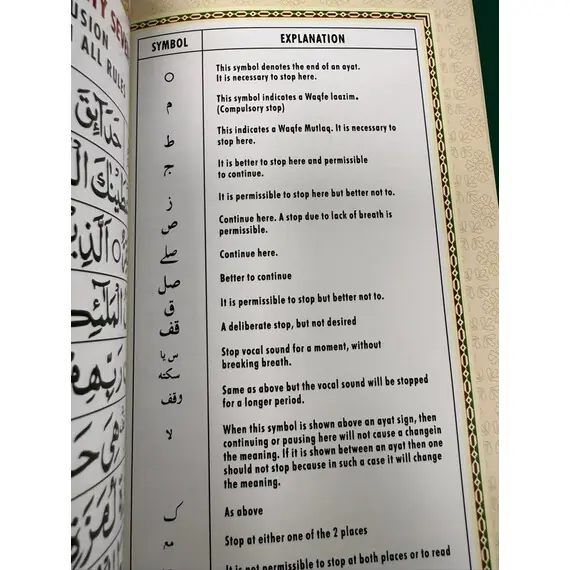 USION
ALL RULES
حَدَآئِقَ
SYMBOL EXPLANATION
○ This symbol denotes the end of an ayat.
It is necessary to stop here.
م This symbol indicates a Waqfe laazim.
(Compulsory stop)
ط This indicates a Waqfe Mutlaq. It is necessary to
stop here.
ج It is better to stop here and permissible
to continue.
ز It is permissible to stop here but better not to.
ص Continue here. A stop due to lack of breath is
permissible.
صلے Continue here.
صل Better to continue
ق It is permissible to stop but better not to.
قف A deliberate stop, but not desired
س یا
سکته
Stop vocal sound for a moment, without
breaking breath.
وقف Same as above but the vocal sound will be stopped
for a longer period.
لا When this symbol is shown above an ayat sign, then
continuing or pausing here will not cause a changein
the meaning. If it is shown between an ayat then one
should not stop because in such a case it will change
the meaning.
ک As above
مع Stop at either one of the 2 places
It is not permissible to stop at both places or to read